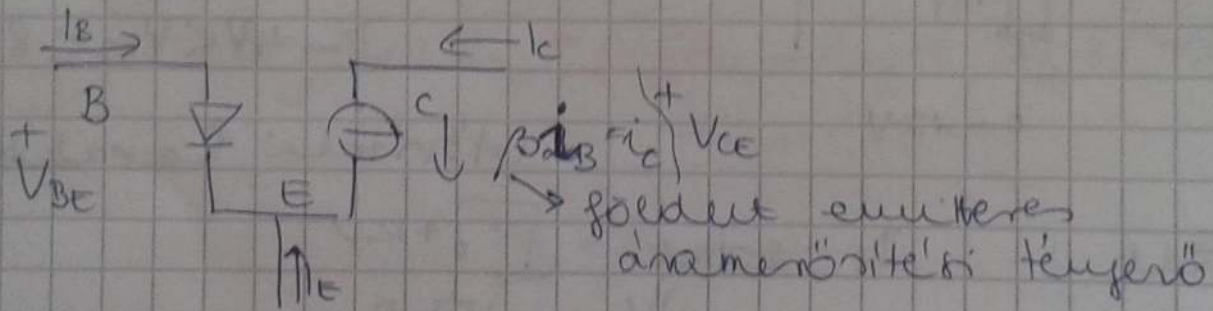 I_B
I_C
B
C
+
+
βi_B = i_C
V_CE
V_BE
E
földelt emitteres
áramerősítési tényező
I_E